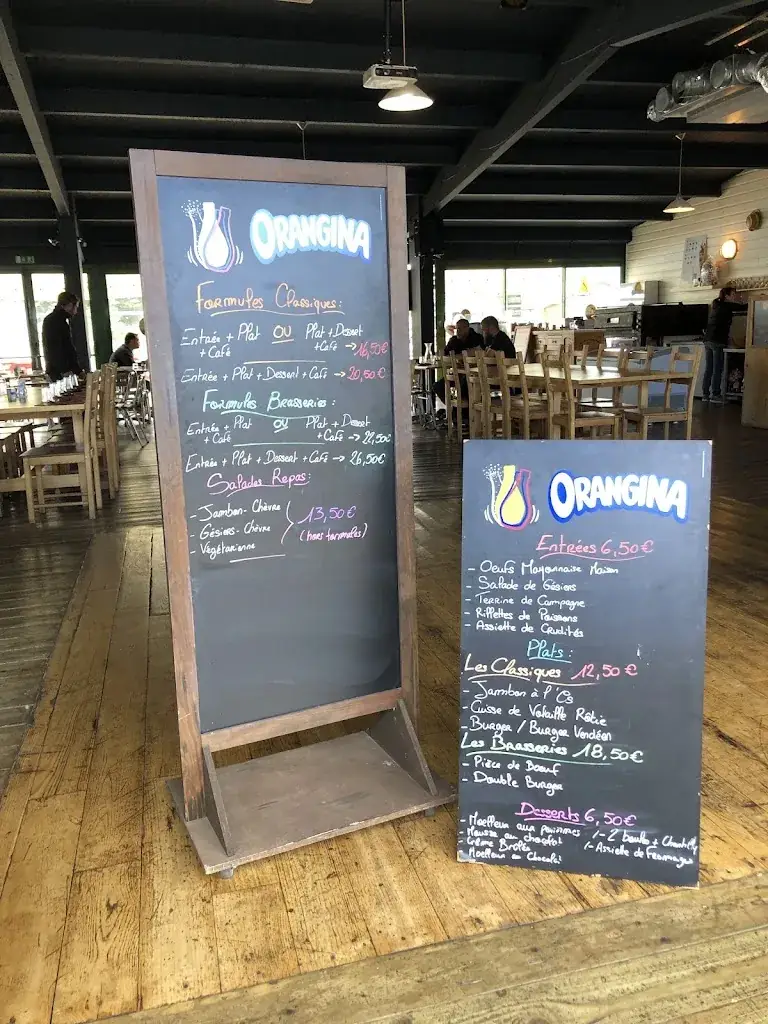 ORANGINA
Formules Classiques:
Entrée + Plat OU Plat + Dessert
+ Café + Café → 16,50€
Entrée + Plat + Dessert + Café → 20,50€
Formules Brasseries:
Entrée + Plat OU Plat + Dessert
+ Café + Café → 22,50€
Entrée + Plat + Dessert + Café → 26,50€
Salades Repas:
- Jambon-Chèvre
- Gésiers-Chèvre
- Végétarienne
13,50€
(hors formules)
ORANGINA
Entrées 6,50€
- Oeufs Mayonnaise Maison
- Salade de Gésiers
- Terrine de Campagne
- Rillettes de Poissons
- Assiette de Crudités
Plats:
Les Classiques 12,50€
- Jambon à l'Os
- Cuisse de Volaille Rôtie
- Burger / Burger Vendéen
Les Brasseries 18,50€
- Pièce de Boeuf
- Double Burger
Desserts 6,50€
- Moelleux aux pommes /- 2 boules + Chantilly
- Mousse au chocolat /- Assiette de Fromages
- Crème Brûlée
- Moelleux au Chocolat